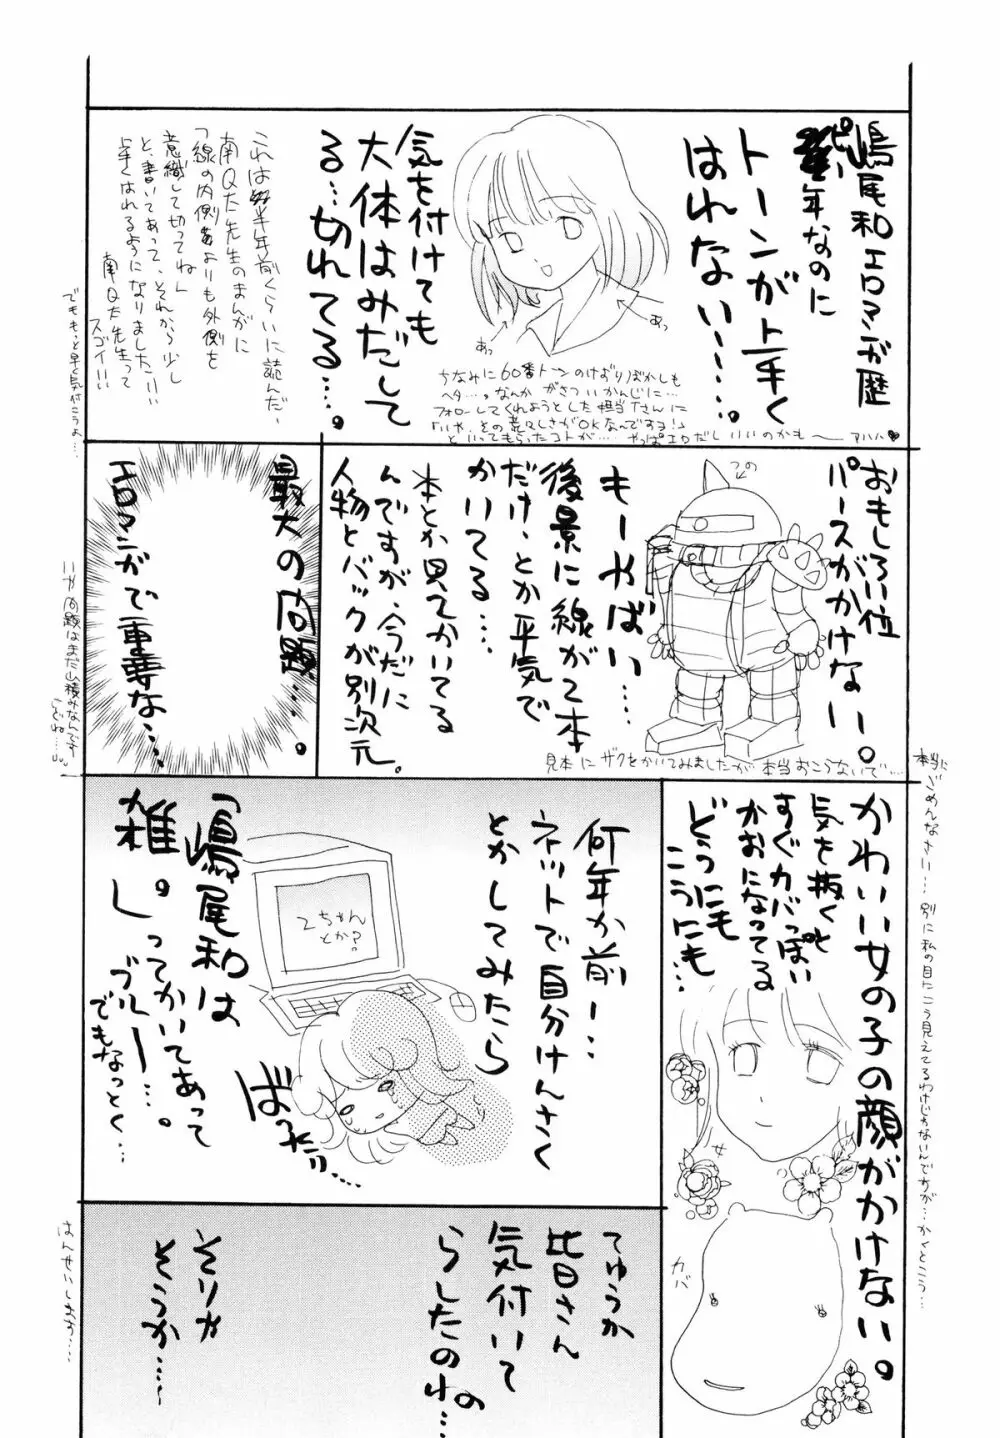 嶋尾和エロマンガ歴
ピー年なのに
トーンが上手く
はれない……。
気を付けても
大体はみだして
る…切れてる。
これは半年前くらいに読んだ、
南Q太先生のまんがに
「線の内側よりも外側を
意識して切ってね」
と、書いてあって、それから少し
上手くはれるようになりました!!!
南Q太先生って
スゴイ!!!
でももっと早く気付こうよ…。
あっ
あっ
ちなみに60番トーンのけずりぼかしも
ヘタ…。なんか がさついかんじに…
フォローしてくれようとした担当Tさんに
「いや、その荒々しさがOKなんですヨ!」
といってもらったコトが…… やっぱエロだしいいのかも〜 アハハ♥
おもしろい位
パースがかけない。
つの
もーやばい……
後景に線が2本
だけ、とか平気で
かいてる……
本とか見てかいてる
んですが、今だに
人物とバックが別次元。
見本にザクをかいてみましたが本当おこらないで……
本当に
ごめんなさい…別に私の目にこう見えてるわけじゃないんですが…かくとこう…
最大の問題…。
エロマンガで重要な……
いや問題はまだ山積みなんです
けどね……。
かわいい女の子の顔がかけない。
気を抜くと
すぐカバっぽい
かおになってる
どうにも
こうにも…
女
カバ
何年か前ー…
ネットで自分けんさく
とかしてみたら
2ちゃん
とか?
「嶋尾和は
雑。」ってかいてあって
ブルー…。
でもなっとく…
ばったり…
てゆうか
皆さん
気付いて
らしたのね…
そりゃ
そうか……
はんせいしまふ……